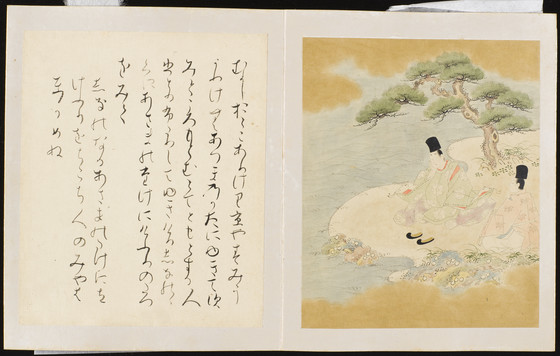 むかしおとこありけり京やすみう
かりけむあつまの方にゆきてす
みところもとむとてともとする人
ひとりふたりしてゆきけりしなのの
くにあさまのたけにけふりのたつ
をみて
しなのなるあさまのたけにたつ
けふりをちこち人のみやは
とかめぬ